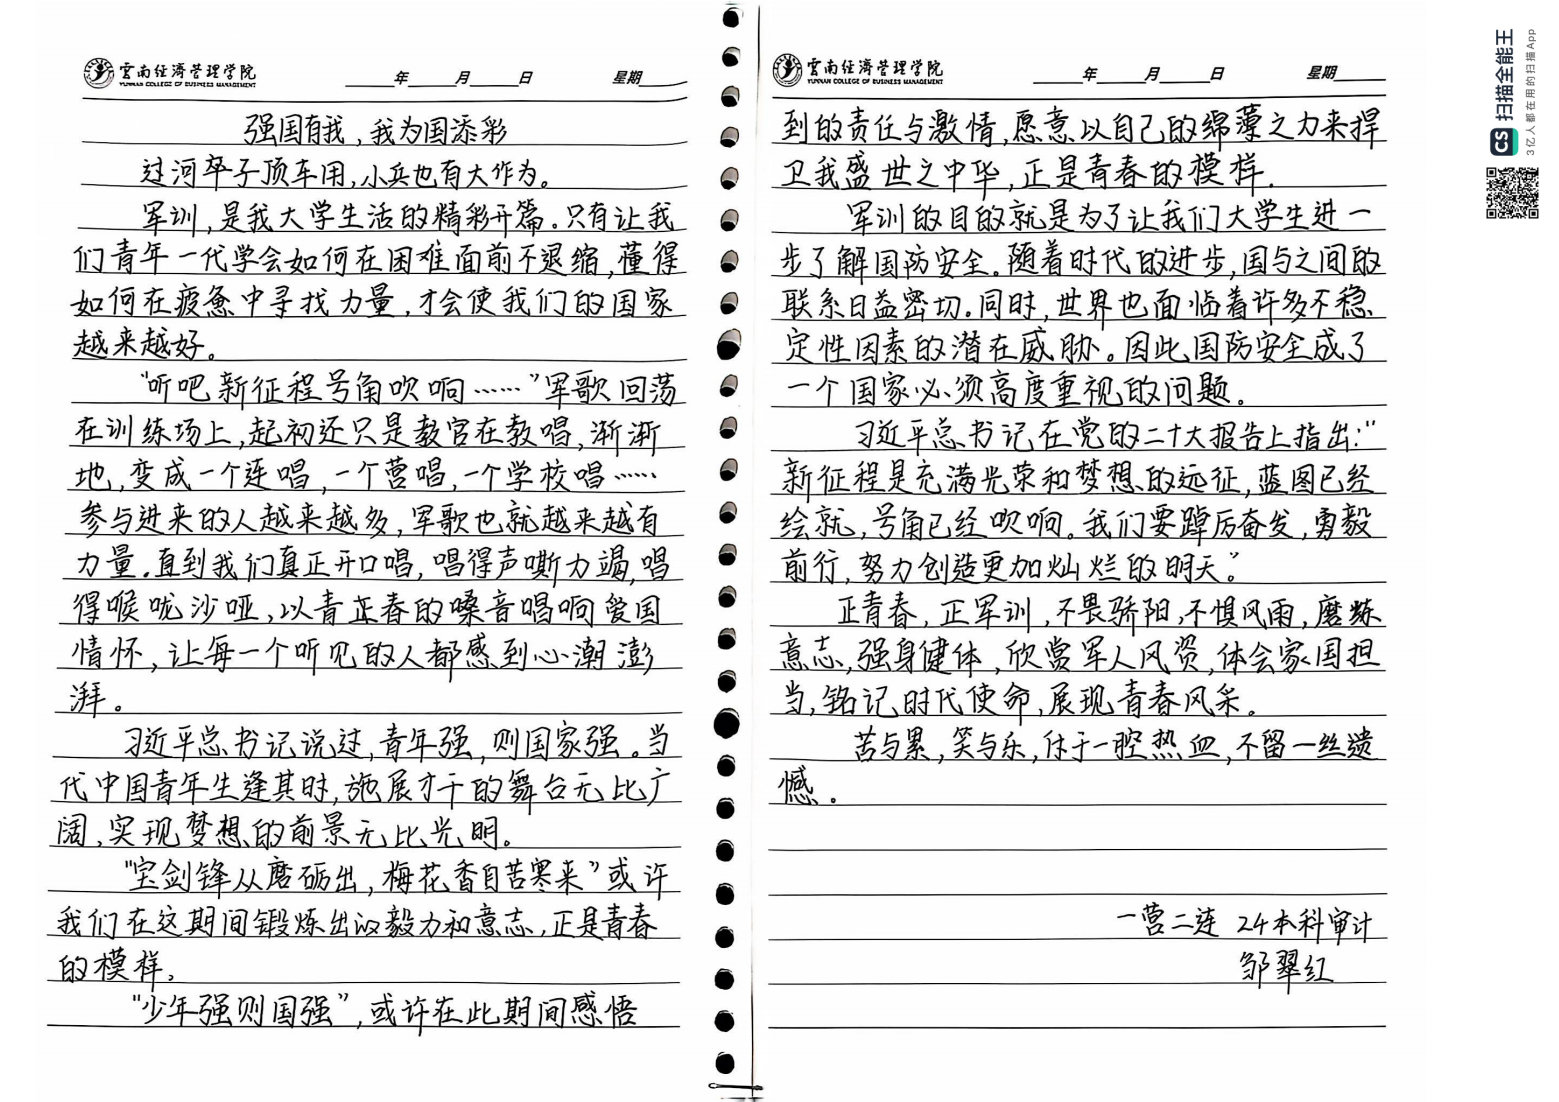 雲南经濟管理学院
YUNNAN COLLEGE OF BUSINESS MANAGEMENT
年 月 日 星期
强国有我，我为国添彩
过河卒子顶车用，小兵也有大作为。
军训，是我大学生活的精彩开篇。只有让我
们青年一代学会如何在困难面前不退缩，懂得
如何在疲惫中寻找力量，才会使我们的国家
越来越好。
“听吧新征程号角吹响……”军歌回荡
在训练场上，起初还只是教官在教唱，渐渐
地，变成一个连唱，一个营唱，一个学校唱……
参与进来的人越来越多，军歌也就越来越有
力量。直到我们真正开口唱，唱得声嘶力竭，唱
得喉咙沙哑，以青春的嗓音唱响爱国
情怀，让每一个听见的人都感到心潮澎
湃。
习近平总书记说过，青年强，则国家强。当
代中国青年生逢其时，施展才干的舞台无比广
阔，实现梦想的前景无比光明。
“宝剑锋从磨砺出，梅花香自苦寒来”或许
我们在这期间锻炼出的毅力和意志，正是青春
的模样。
“少年强则国强”，或许在此期间感悟
雲南经濟管理学院
YUNNAN COLLEGE OF BUSINESS MANAGEMENT
年 月 日 星期
到的责任与激情，愿意以自己的绵薄之力来捍
卫我盛世之中华，正是青春的模样.
军训的目的就是为了让我们大学生进一
步了解国防安全。随着时代的进步，国与之间的
联系日益密切。同时，世界也面临着许多不稳
定性因素的潜在威胁。因此国防安全成了
一个国家必须高度重视的问题。
习近平总书记在党的二十大报告上指出：“
新征程是充满光荣和梦想的远征，蓝图已经
绘就，号角已经吹响。我们要踔厉奋发，勇毅
前行，努力创造更加灿烂的明天。”
正青春，正军训，不畏骄阳，不惧风雨，磨炼
意志，强身健体，欣赏军人风姿，体会家国担
当，铭记时代使命，展现青春风采。
苦与累，笑与乐，付于一腔热血，不留一丝遗
憾。
一营二连 24本科审计
邹翠红
CS 扫描全能王
3亿人都在用的扫描App